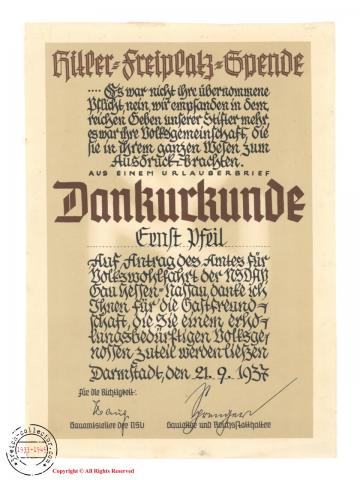 Hitler-Freiplatz-Spende
.... Es war nicht ihre übernommene
Pflicht, nein, wir empfanden in dem
reichen Geben unserer Stifter mehr,
es war ihre Volksgemeinschaft, die
sie in ihrem ganzen Wesen zum
Ausdruck brachten.
AUS EINEM URLAUBERBRIEF
Dankurkunde
Ernst Pfeil
Auf Antrag des Amtes für
Volkswohlfahrt der NSDAP
Gau Hessen-Nassau danke ich
Ihnen für die Gastfreund-
schaft, die Sie einem erho-
lungsbedürftigen Volksge-
nossen zuteil werden ließen
Darmstadt, den 21. 9. 1937
Für die Richtigkeit:
Sprenger
Gauamtsleiter der NSV
Gauleiter und Reichsstatthalter
reich-collector.com
1933-1945
Copyright © All Rights Reserved